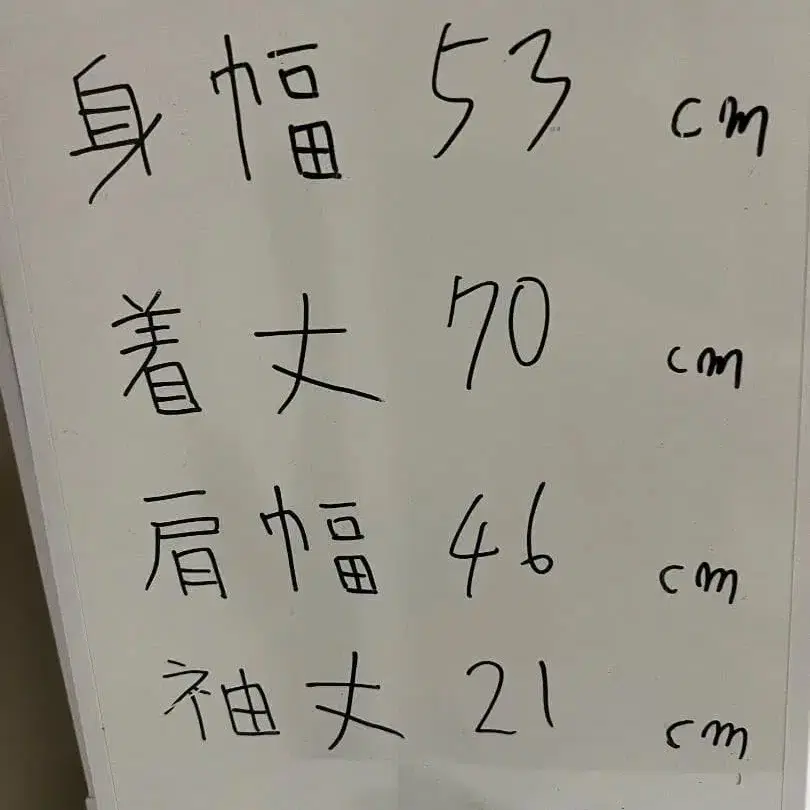 身幅 53 cm
着丈 70 cm
肩幅 46 cm
袖丈 21 cm